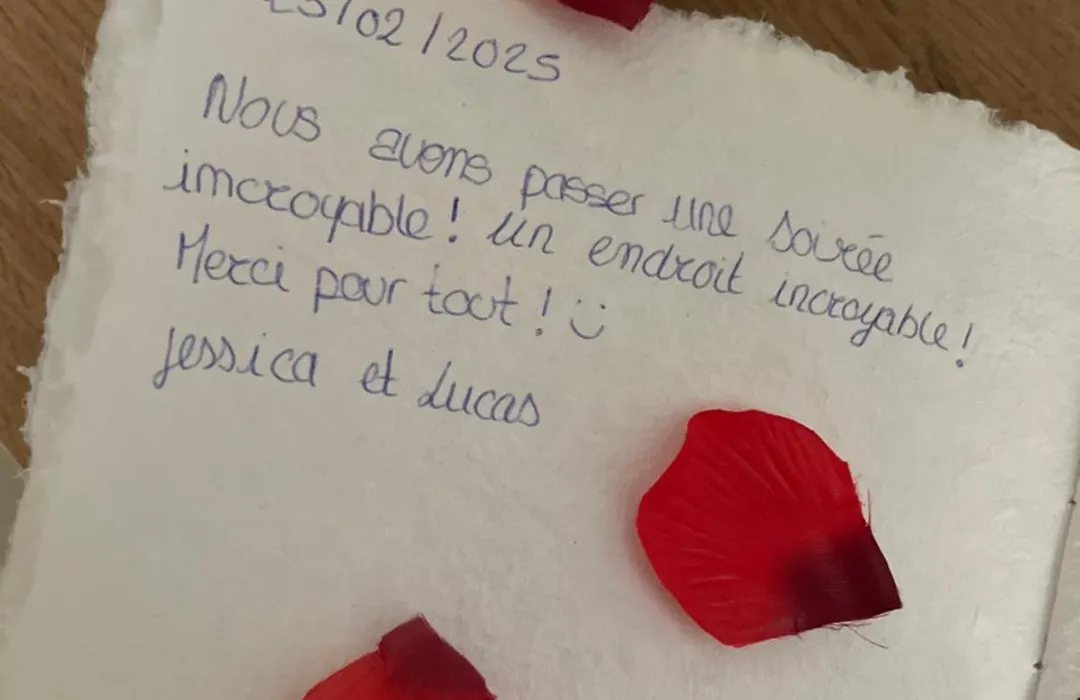 23/02/2025
Nous avons passer une soirée
imcroyable! un endroit incroyable!
Merci pour tout! :)
Jessica et Lucas